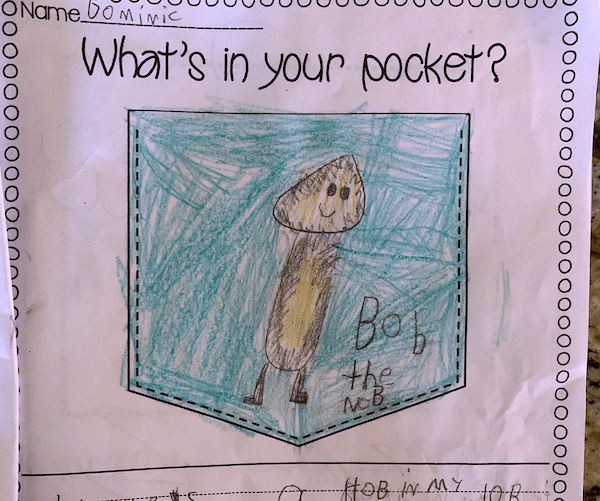 Name Dominic
What's in your pocket?
Bob
the
NoB
HOB in MY